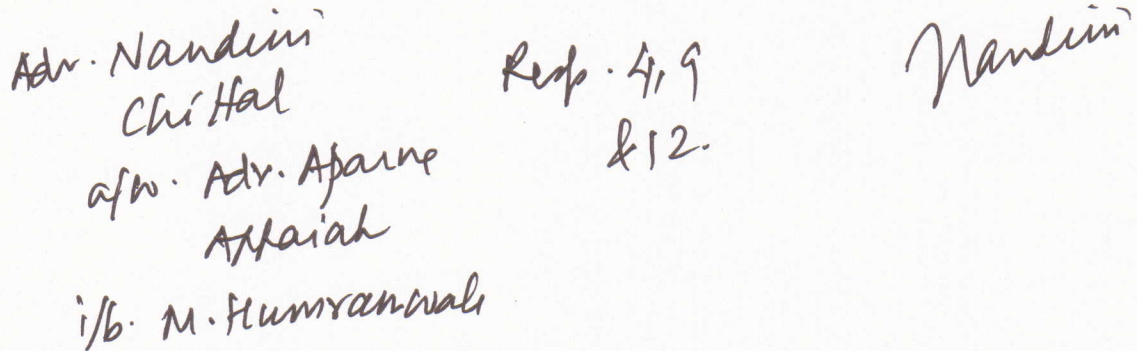 Adv. Nandini
Chittal
a/w. Adv. Aparna
Appaiah
i/b. M. Humranwala
Resp. 4, 9
& 12.
Nandini